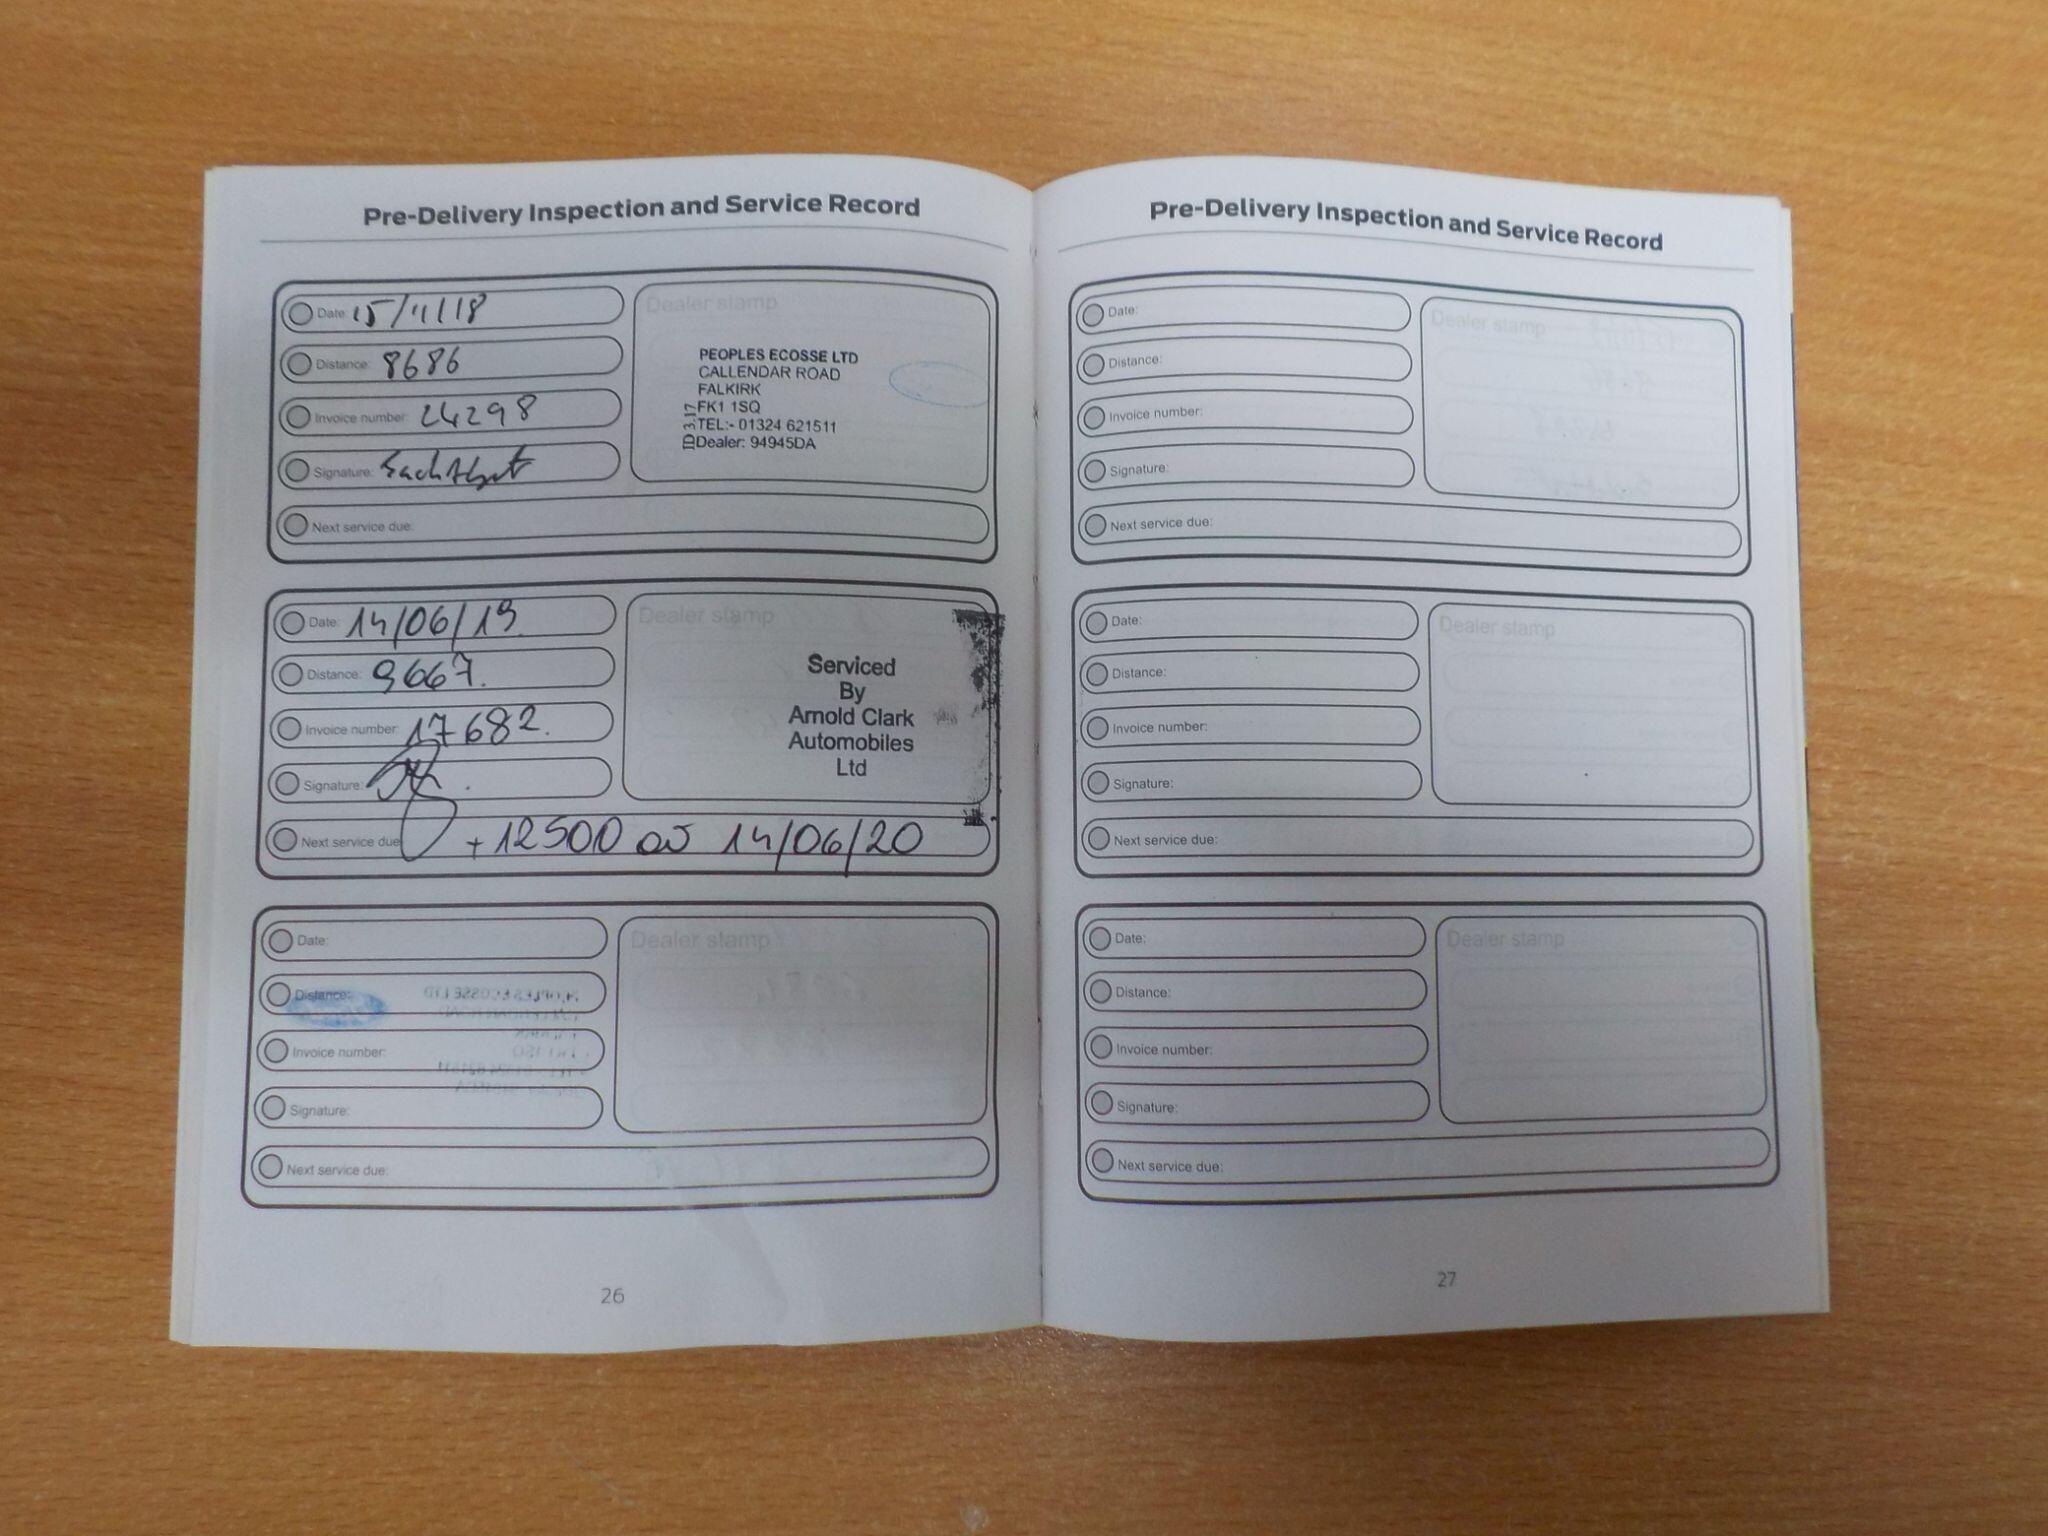 Pre-Delivery Inspection and Service Record
Date: 15/11/18
Distance: 8686
Invoice number: 24298
Signature:
Next service due:
Dealer stamp
PEOPLES ECOSSE LTD
CALLENDAR ROAD
FALKIRK
FK1 1SQ
TEL:- 01324 621511
Dealer: 94945DA
Date: 14/06/19
Distance: 9667.
Invoice number: 17682.
Signature:
Next service due +12500 or 14/06/20
Dealer stamp
Serviced
By
Arnold Clark
Automobiles
Ltd
Date:
Distance:
Invoice number:
Signature:
Next service due:
Dealer stamp
26
Pre-Delivery Inspection and Service Record
Date:
Distance:
Invoice number:
Signature:
Next service due:
Dealer stamp
Date:
Distance:
Invoice number:
Signature:
Next service due:
Dealer stamp
Date:
Distance:
Invoice number:
Signature:
Next service due:
Dealer stamp
27